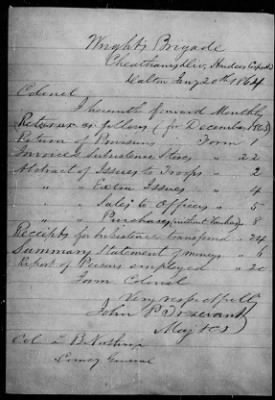 Wright's Brigade
Cheatham's Div, Hindmans Corps
Dalton Jany 20th 1864
Colonel
I herewith forward Monthly
Returns as follows (for December 1863)
Return of Provisions Form 1
Invoices Subsistence Stores " 22
Abstract of Issues to Troops " 2
" " Extra Issues " 4
" " Sales to Officers " 5
" " Purchases, without Vouchers 8
Receipts for Subsistence transferred " 24
Summary Statement of moneys " 6
Report of Persons employed " 20
Colonel
Very respectfully
John P
Maj &
Col B
General